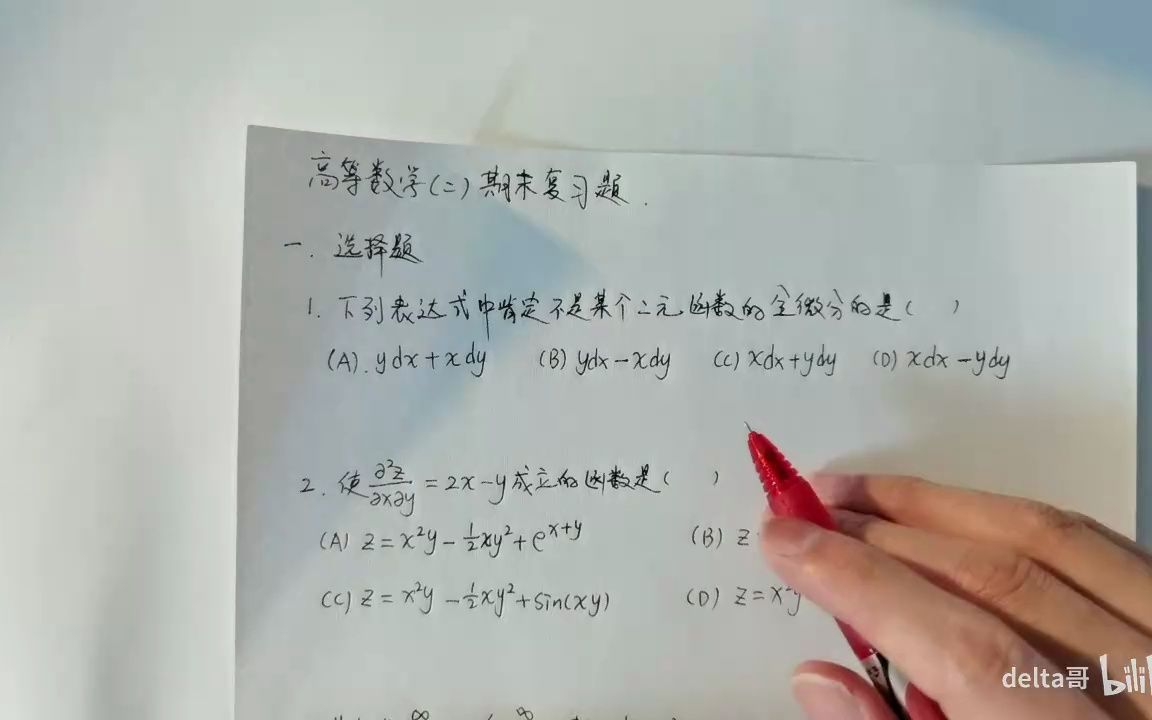 高等数学(二)期末复习题.
一. 选择题
1. 下列表达式中肯定不是某个二元函数的全微分的是( )
(A). ydx+xdy (B) ydx-xdy (C) xdx+ydy (D) xdx-ydy
2. 使 ∂²z/∂x∂y = 2x-y 成立的函数是( )
(A) z = x²y - ½xy² + e^(x+y) (B) z
(C) z = x²y - ½xy² + sin(xy) (D) z = x²y
delta哥 bili